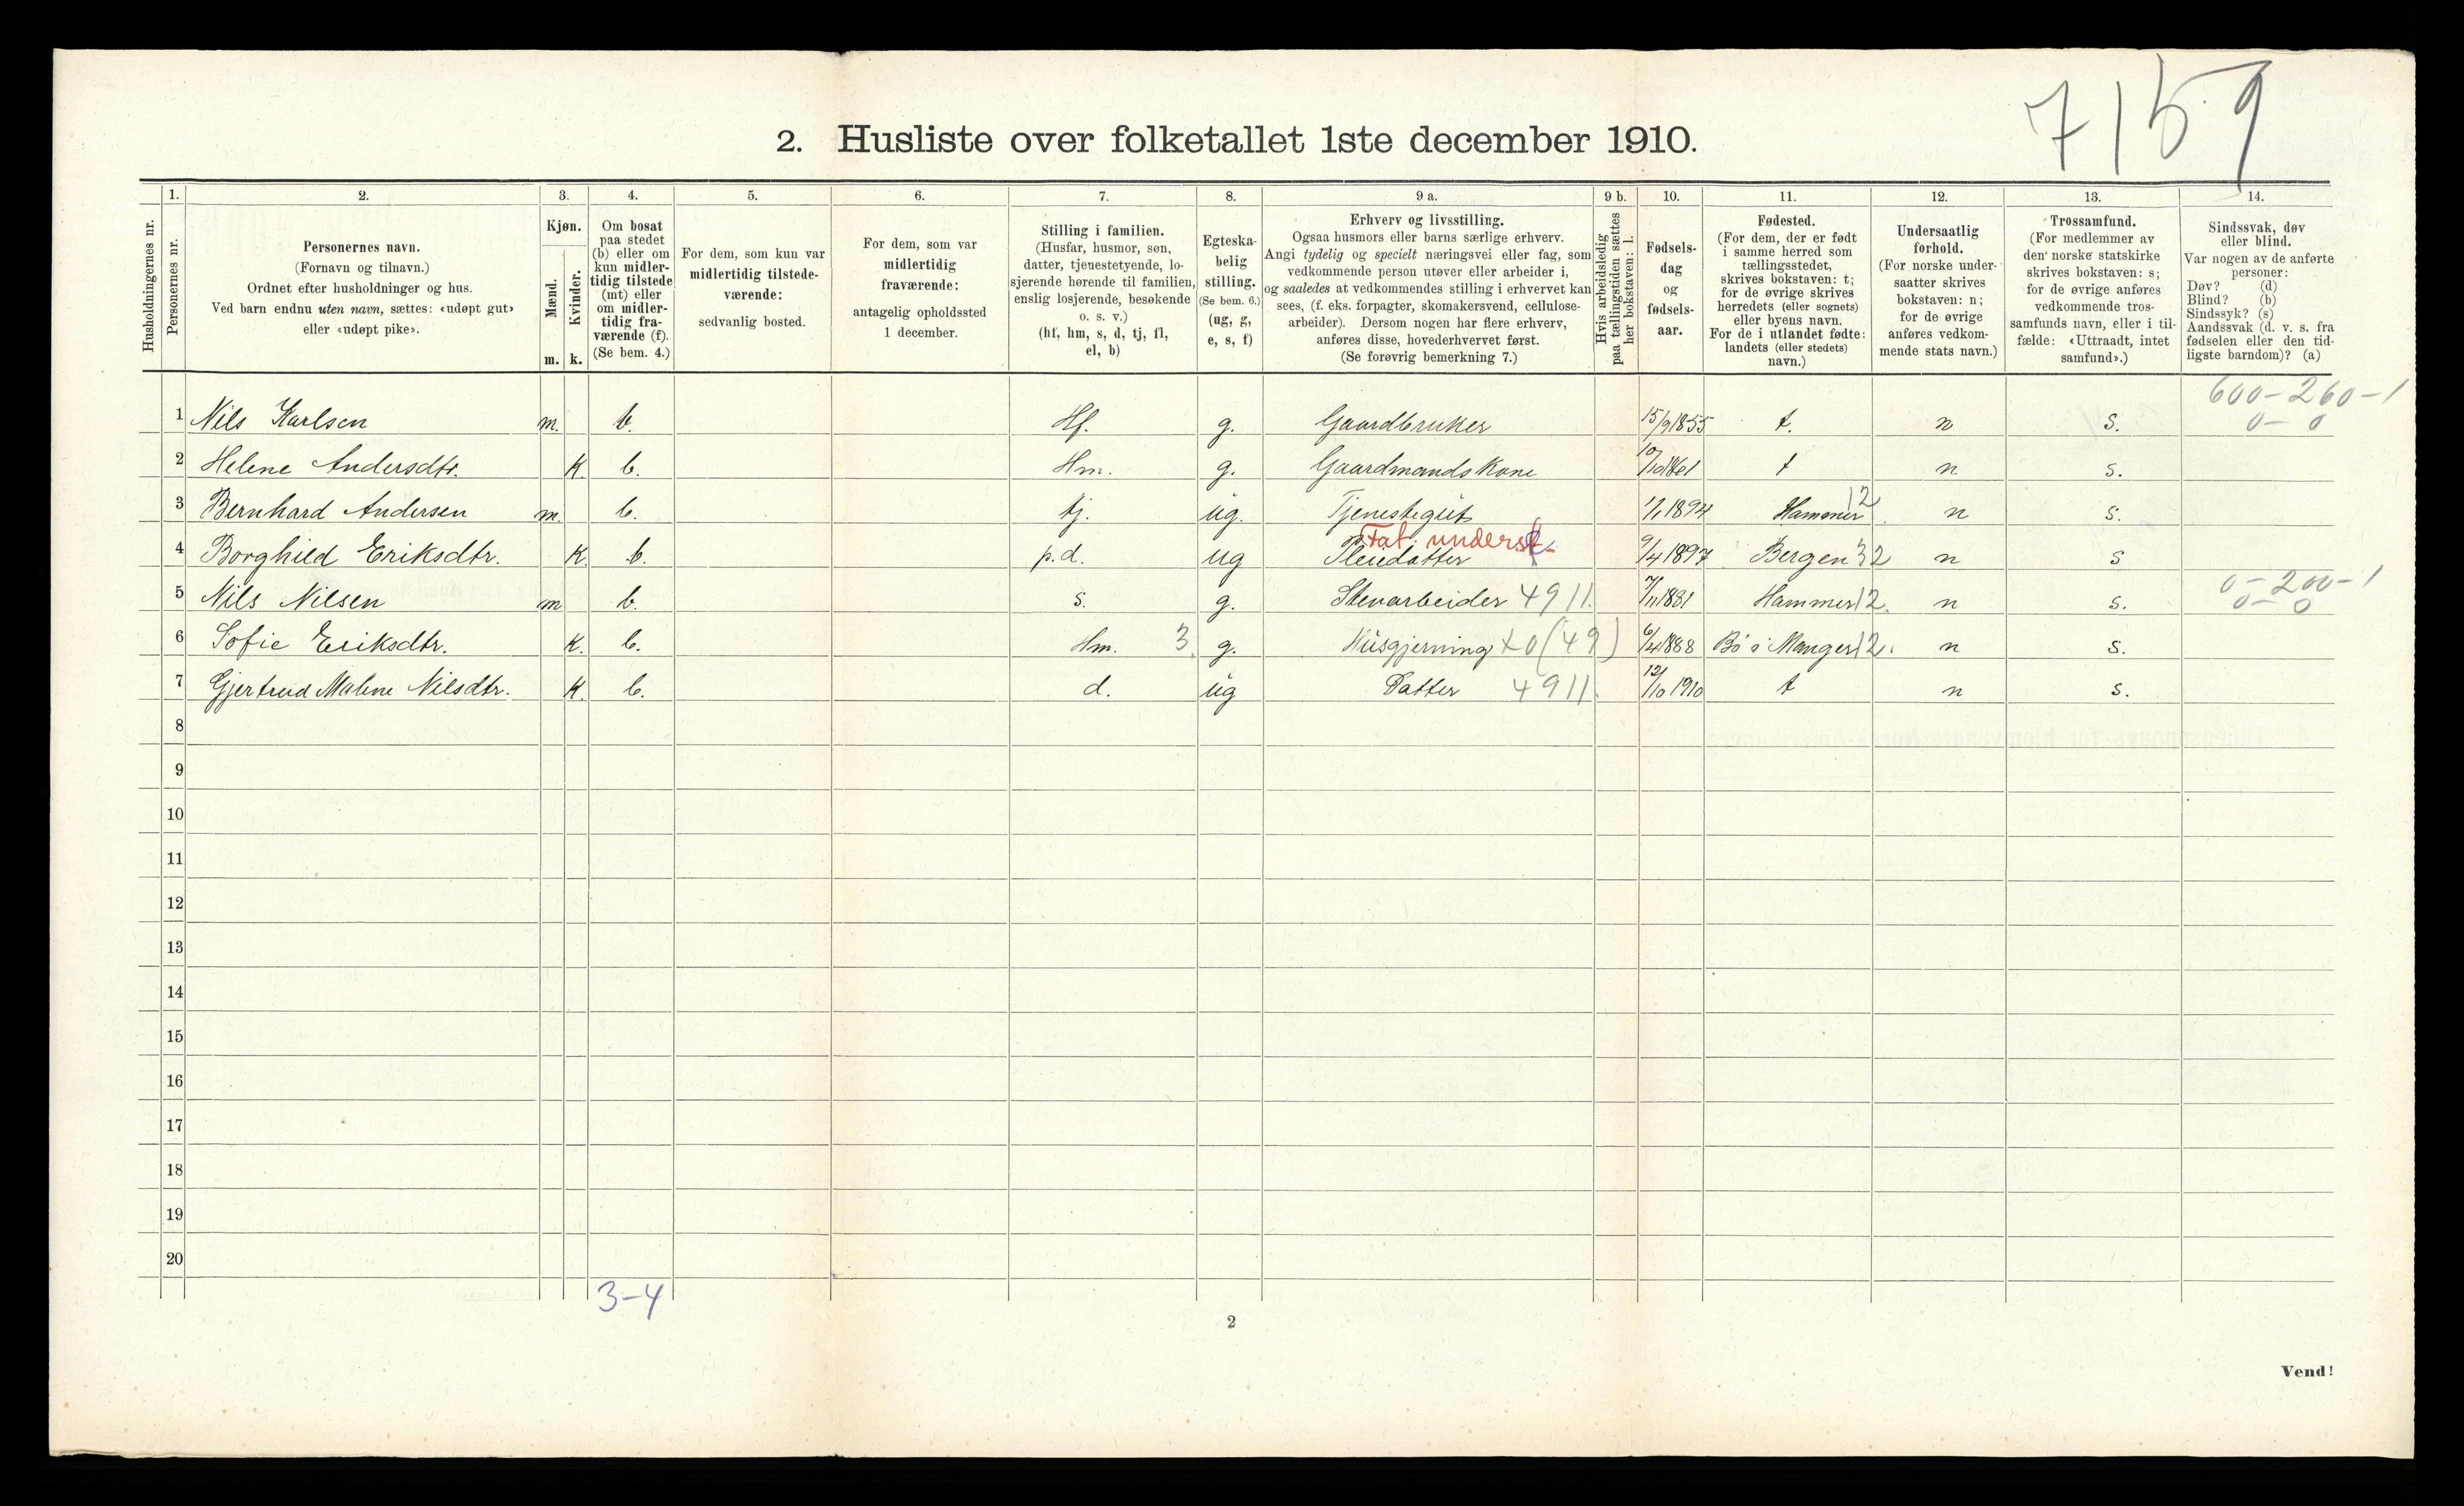 7159
2. Husliste over folketallet 1ste december 1910.
1. 2. 3. 4. 5. 6. 7. 8. 9 a. 9 b. 10. 11. 12. 13. 14.
Husholdningernes nr.
Personernes nr.
Personernes navn.
(Fornavn og tilnavn.)
Ordnet efter husholdninger og hus.
Ved barn endnu uten navn, sættes: «udøpt gut»
eller «udøpt pike».
Kjøn.
Mænd.
Kvinder.
m. k.
Om bosat
paa stedet
(b) eller om
kun midler-
tidig tilstede
(mt) eller
om midler-
tidig fra-
værende (f).
(Se bem. 4.)
For dem, som kun var
midlertidig tilstede-
værende:
sedvanlig bosted.
For dem, som var
midlertidig
fraværende:
antagelig opholdssted
1 december.
Stilling i familien.
(Husfar, husmor, søn,
datter, tjenestetyende, lo-
sjerende hørende til familien,
enslig losjerende, besøkende
o. s. v.)
(hf, hm, s, d, tj, fl,
el, b)
Egteska-
belig
stilling.
(Se bem. 6.)
(ug, g,
e, s, f)
Erhverv og livsstilling.
Ogsaa husmors eller barns særlige erhverv.
Angi tydelig og specielt næringsvei eller fag, som
vedkommende person utøver eller arbeider i,
og saaledes at vedkommendes stilling i erhvervet kan
sees, (f. eks. forpagter, skomakersvend, cellulose-
arbeider). Dersom nogen har flere erhverv,
anføres disse, hovederhvervet først.
(Se forøvrig bemerkning 7.)
Hvis arbeidsledig
paa tællingstiden sættes
her bokstaven: l.
Fødsels-
dag
og
fødsels-
aar.
Fødested.
(For dem, der er født
i samme herred som
tællingsstedet,
skrives bokstaven: t;
for de øvrige skrives
herredets (eller sognets)
eller byens navn.
For de i utlandet fødte:
landets (eller stedets)
navn.)
Undersaatlig
forhold.
(For norske under-
saatter skrives
bokstaven: n;
for de øvrige
anføres vedkom-
mende stats navn.)
Trossamfund.
(For medlemmer av
den norske statskirke
skrives bokstaven: s;
for de øvrige anføres
vedkommende tros-
samfunds navn, eller i til-
fælde: «Uttraadt, intet
samfund».)
Sindssvak, døv
eller blind.
Var nogen av de anførte
personer:
Døv? (d)
Blind? (b)
Sindssyk? (s)
Aandssvak (d. v. s. fra
fødselen eller den tid-
ligste barndom)? (a)
600-260-1
1 Nils Karlsen m. b. Hf. g. Gaardbruker 15/9 1855 t. n s. 0- 0
2 Helene Andersdtr. K. b. Hm. g. Gaardmandskone 10/10 1861 t n s.
3 Bernhard Andersen m. b. tj. ug. Tjenestegut 1/1 1894 Hammer 12 n s.
Fat. underst.
4 Borghild Eriksdtr. K. b. p.d. ug Pleiedatter 9/4 1897 Bergen 32 n s
0-200-1
5 Nils Nilsen m b. s. g. Stenarbeider 4911. 7/11 1881 Hammer 12. n s. 0- 0
6 Sofie Eriksdtr. K. b. Hm. 3. g. Husgjerning x0 (49) 6/4 1888 Bø i Manger 12. n s.
7 Gjertrud Malene Nilsdtr. K. b. d. ug Datter 4911. 12/10 1910 t n s.
8
9
10
11
12
13
14
15
16
17
18
19
20
3-4
2
Vend!